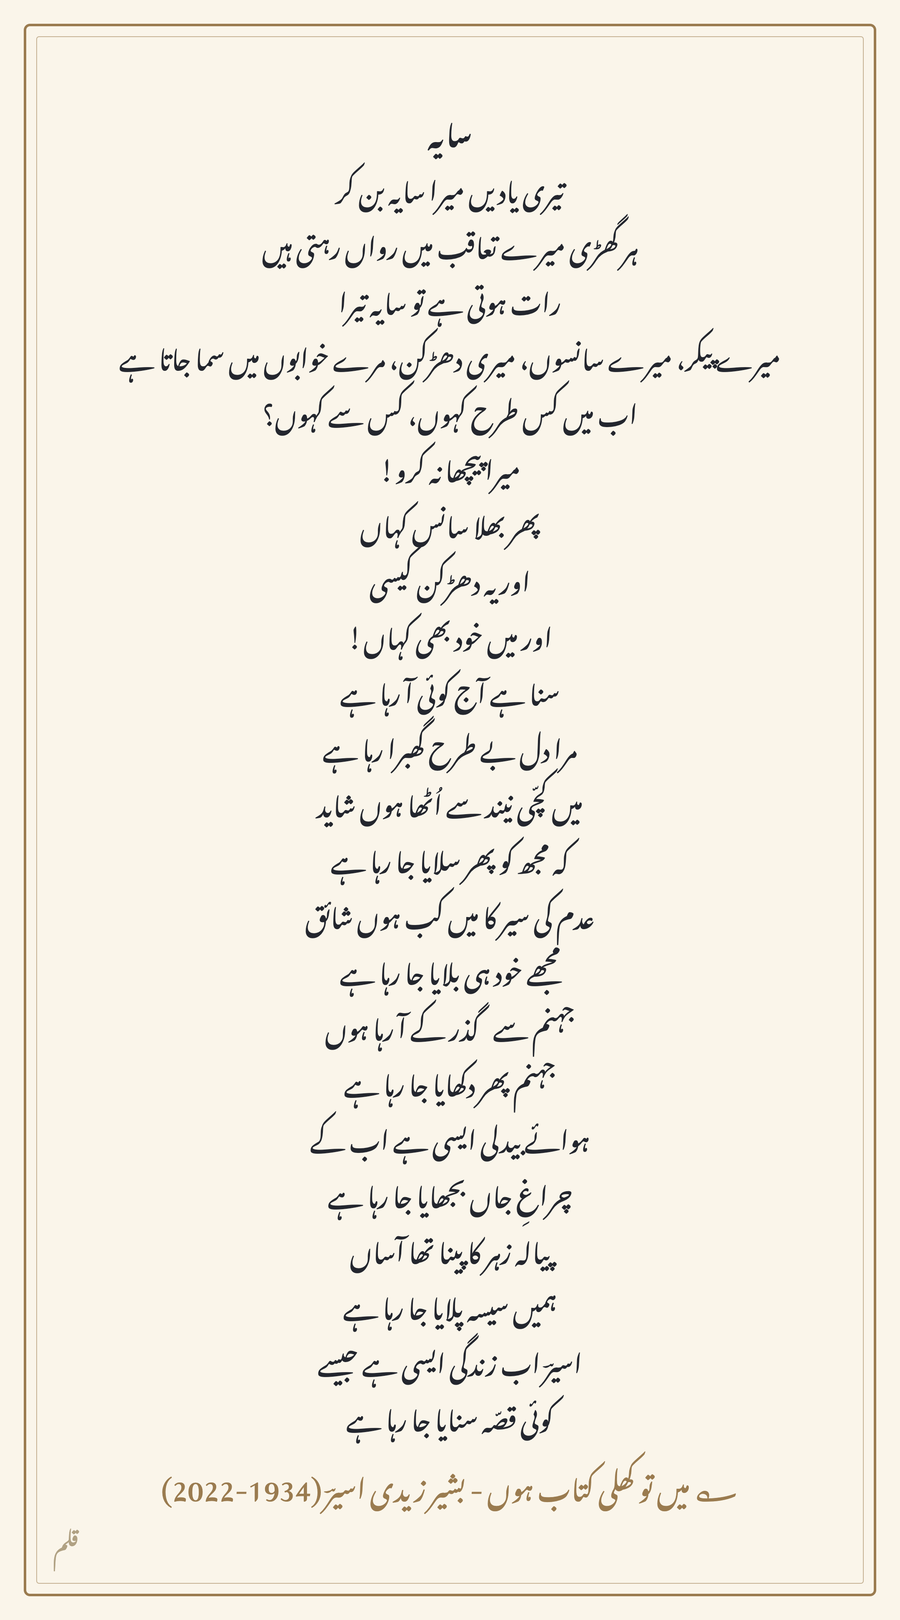 سایہ
تیری یادیں میرا سایہ بن کر
ہر گھڑی میرے تعاقب میں رواں رہتی ہیں
رات ہوتی ہے تو سایہ تیرا
میرے پیکر، میرے سانسوں، میری دھڑکن، مرے خوابوں میں سما جاتا ہے
اب میں کس طرح کہوں، کس سے کہوں؟
میرا پیچھا نہ کرو!
پھر بھلا سانس کہاں
اور یہ دھڑکن کیسی
اور میں خود بھی کہاں!
سنا ہے آج کوئی آ رہا ہے
مرا دل بے طرح گھبرا رہا ہے
میں کچّی نیند سے اُٹھا ہوں شاید
کہ مجھ کو پھر سلایا جا رہا ہے
عدم کی سیر کا میں کب ہوں شائق
مجھے خود ہی بلایا جا رہا ہے
جہنم سے گذر کے آ رہا ہوں
جہنم پھر دکھایا جا رہا ہے
ہوائے بیدلی ایسی ہے اب کے
چراغِ جاں بجھایا جا رہا ہے
پیالہ زہر کا پینا تھا آساں
ہمیں سیسہ پلایا جا رہا ہے
اسیرؔ اب زندگی ایسی ہے جیسے
کوئی قصّہ سنایا جا رہا ہے
؎ میں تو کھلی کتاب ہوں - بشیر زیدی اسیرؔ (1934-2022)
قلم